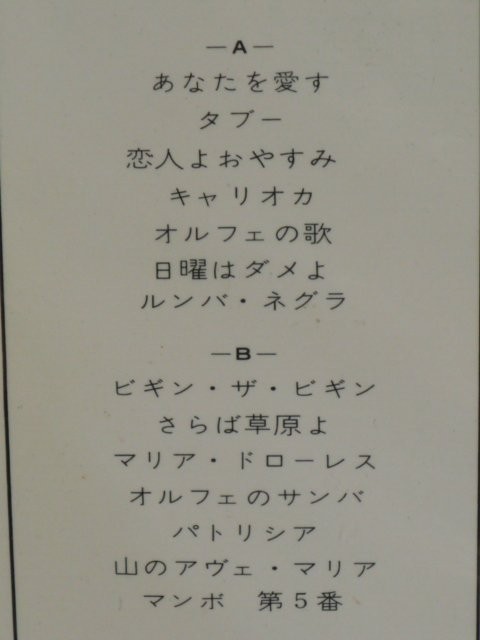 —A—
あなたを愛す
タブー
恋人よおやすみ
キャリオカ
オルフェの歌
日曜はダメよ
ルンバ・ネグラ
—B—
ビギン・ザ・ビギン
さらば草原よ
マリア・ドローレス
オルフェのサンバ
パトリシア
山のアヴェ・マリア
マンボ　第5番